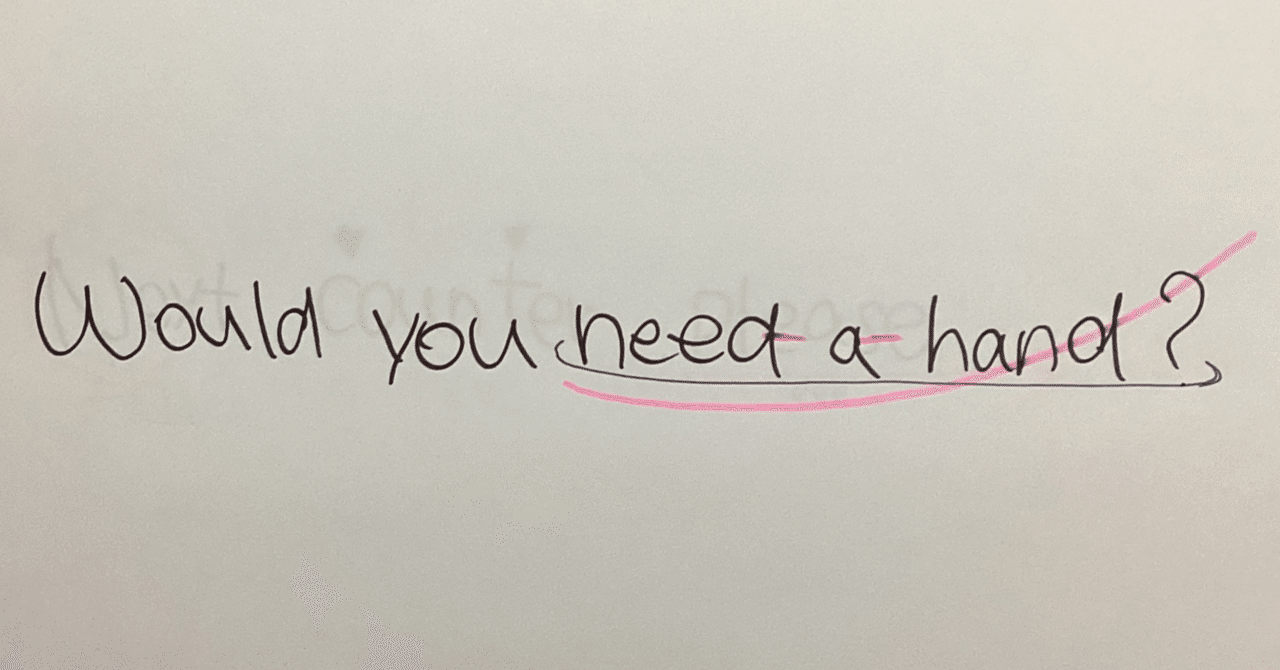 Would you need a hand?